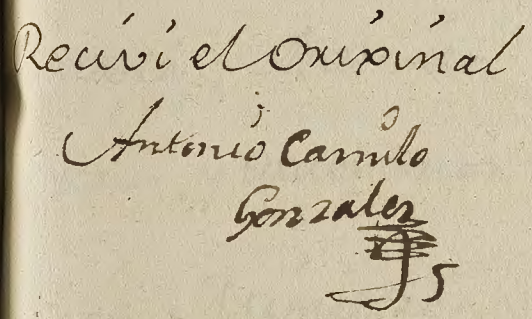 Recivi el Orixinal
Antonio Camilo
Gonzalez